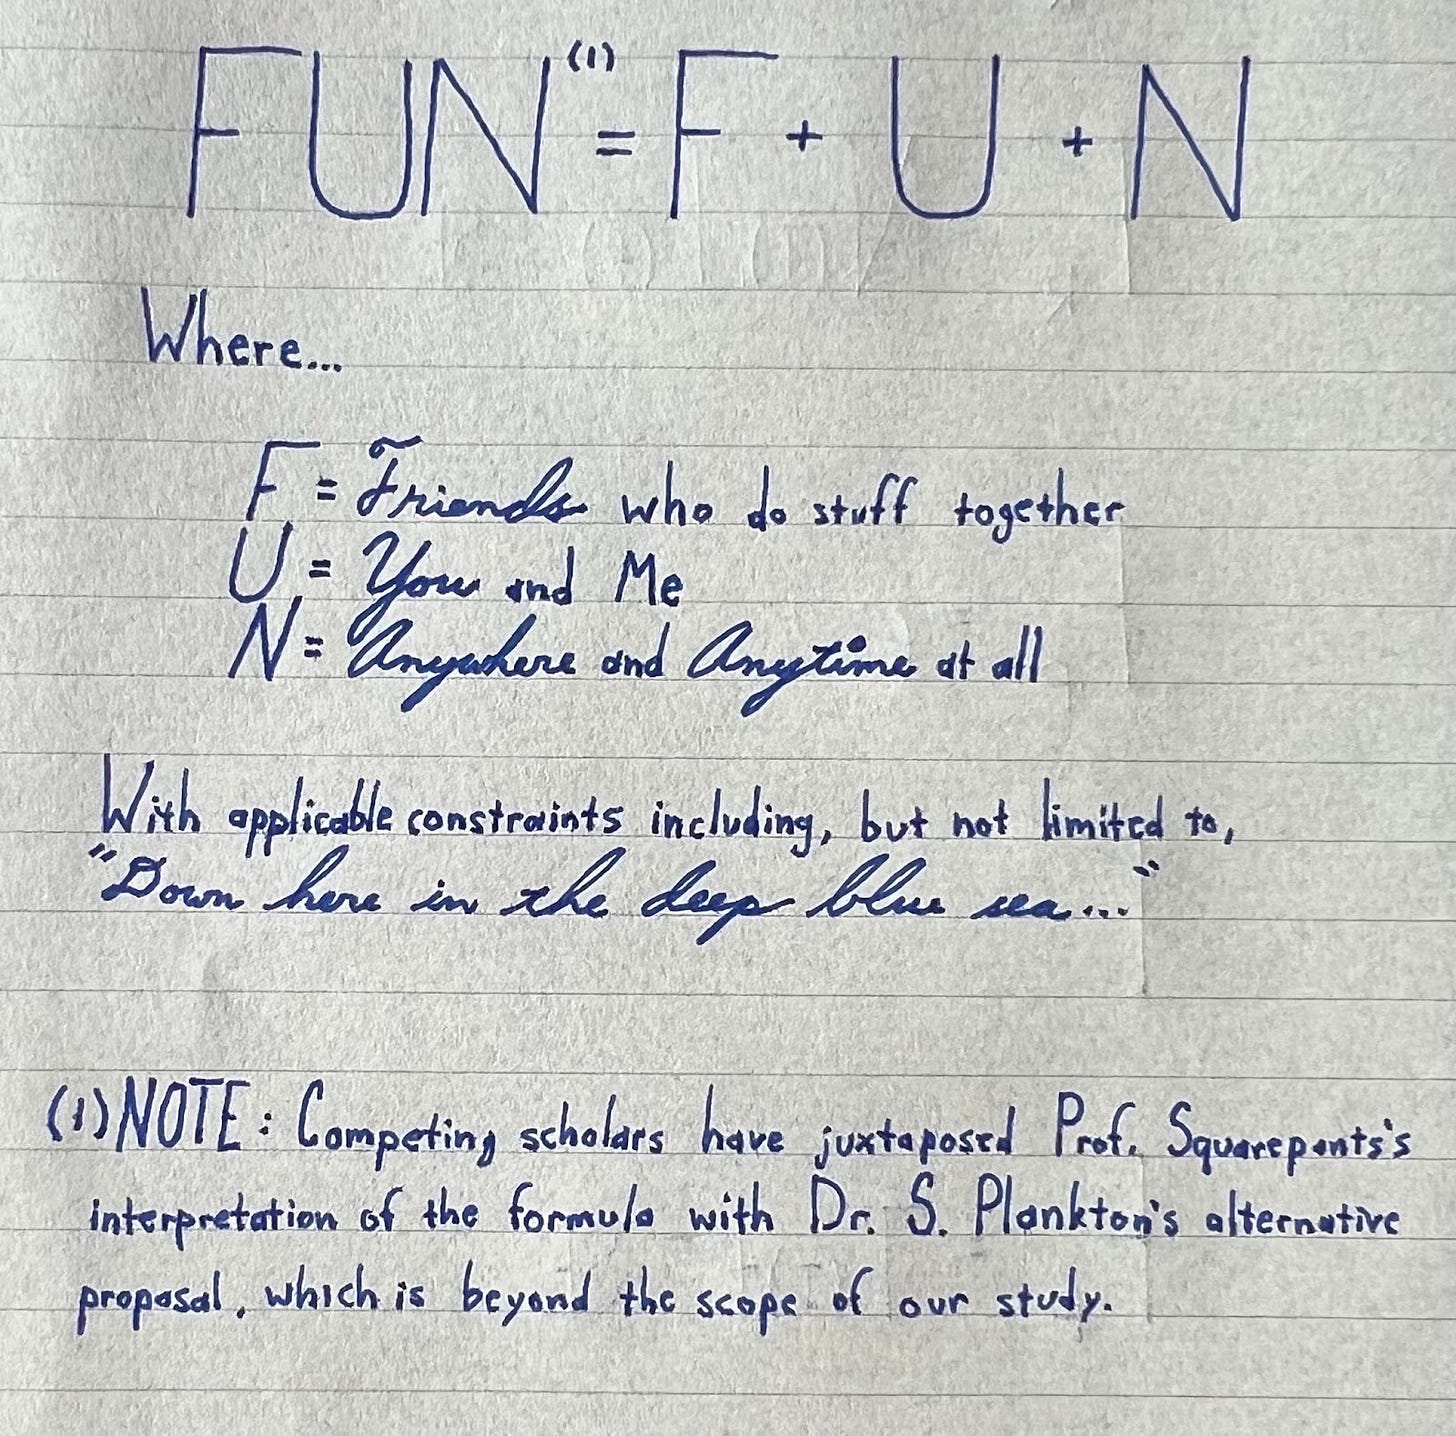 FUN⁽¹⁾ = F + U + N
Where...
F = Friends who do stuff together
U = You and Me
N = Anywhere and Anytime at all
With applicable constraints including, but not limited to,
"Down here in the deep blue sea..."
(1) NOTE: Competing scholars have juxtaposed Prof. Squarepants's
interpretation of the formula with Dr. S. Plankton's alternative
proposal, which is beyond the scope of our study.